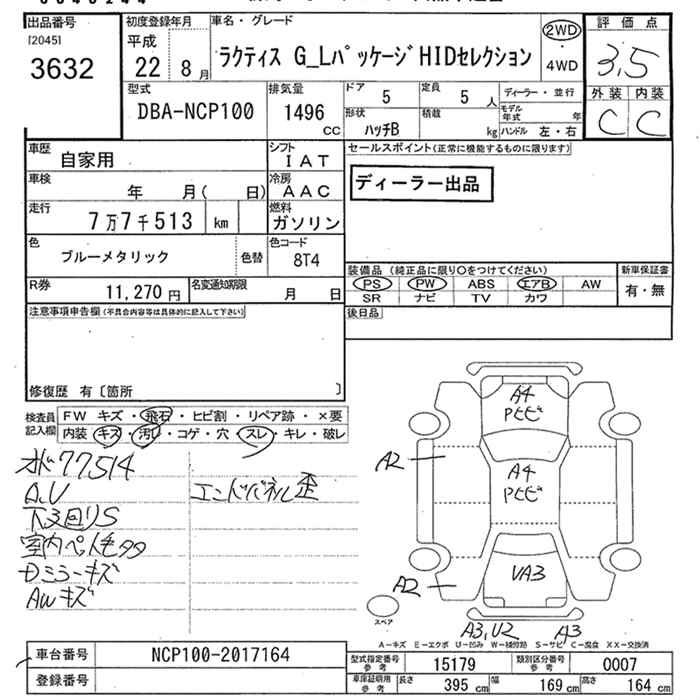 出品番号
[2045]
3632
初度登録年月
平成
22 8月
車名・グレード
ラクティス G_Lパッケージ HIDセレクション
2WD
・
4WD
評価点
3,5
外装 内装
C C
型式
DBA-NCP100
排気量
1496
CC
ドア
5
定員
5 人
形状
ハッチB
積載
kg
ディーラー・並行
モデル年式 年
ハンドル 左・右
車歴
自家用
シフト
IAT
車検
年 月( 日)
冷房
AAC
走行
7万7千513 km
燃料
ガソリン
色
ブルーメタリック
色替
色コード
8T4
R券
11,270 円
名変通知期限
月 日
セールスポイント(正常に機能するものに限ります)
ディーラー出品
装備品 (純正品に限り○をつけてください)
PS PW ABS エアB AW
SR ナビ TV カワ
新車保証書
有・無
後日品
注意事項申告欄(不具合内容等は具体的に記入して下さい)
修復歴 有〔箇所 〕
検査員
記入欄
FW キズ・飛石・ヒビ割・リペア跡・×要
内装・キズ・汚レ・コゲ・穴・スレ・キレ・破レ
77514
A,U
エンドパネル歪
下回りS
Dミラーキズ
AWキズ
A4
A2
A4
A2
VA3
A3,U2
A3
スペア
A-キズ E-エクボ U-凹み W-補修跡 S-サビ C-腐食 XX-交換済
車台番号
NCP100-2017164
登録番号
型式指定番号
参考
15179
類別区分番号
参考
0007
車庫証明用
参考
長さ 395 cm
幅 169 cm
高さ 164 cm